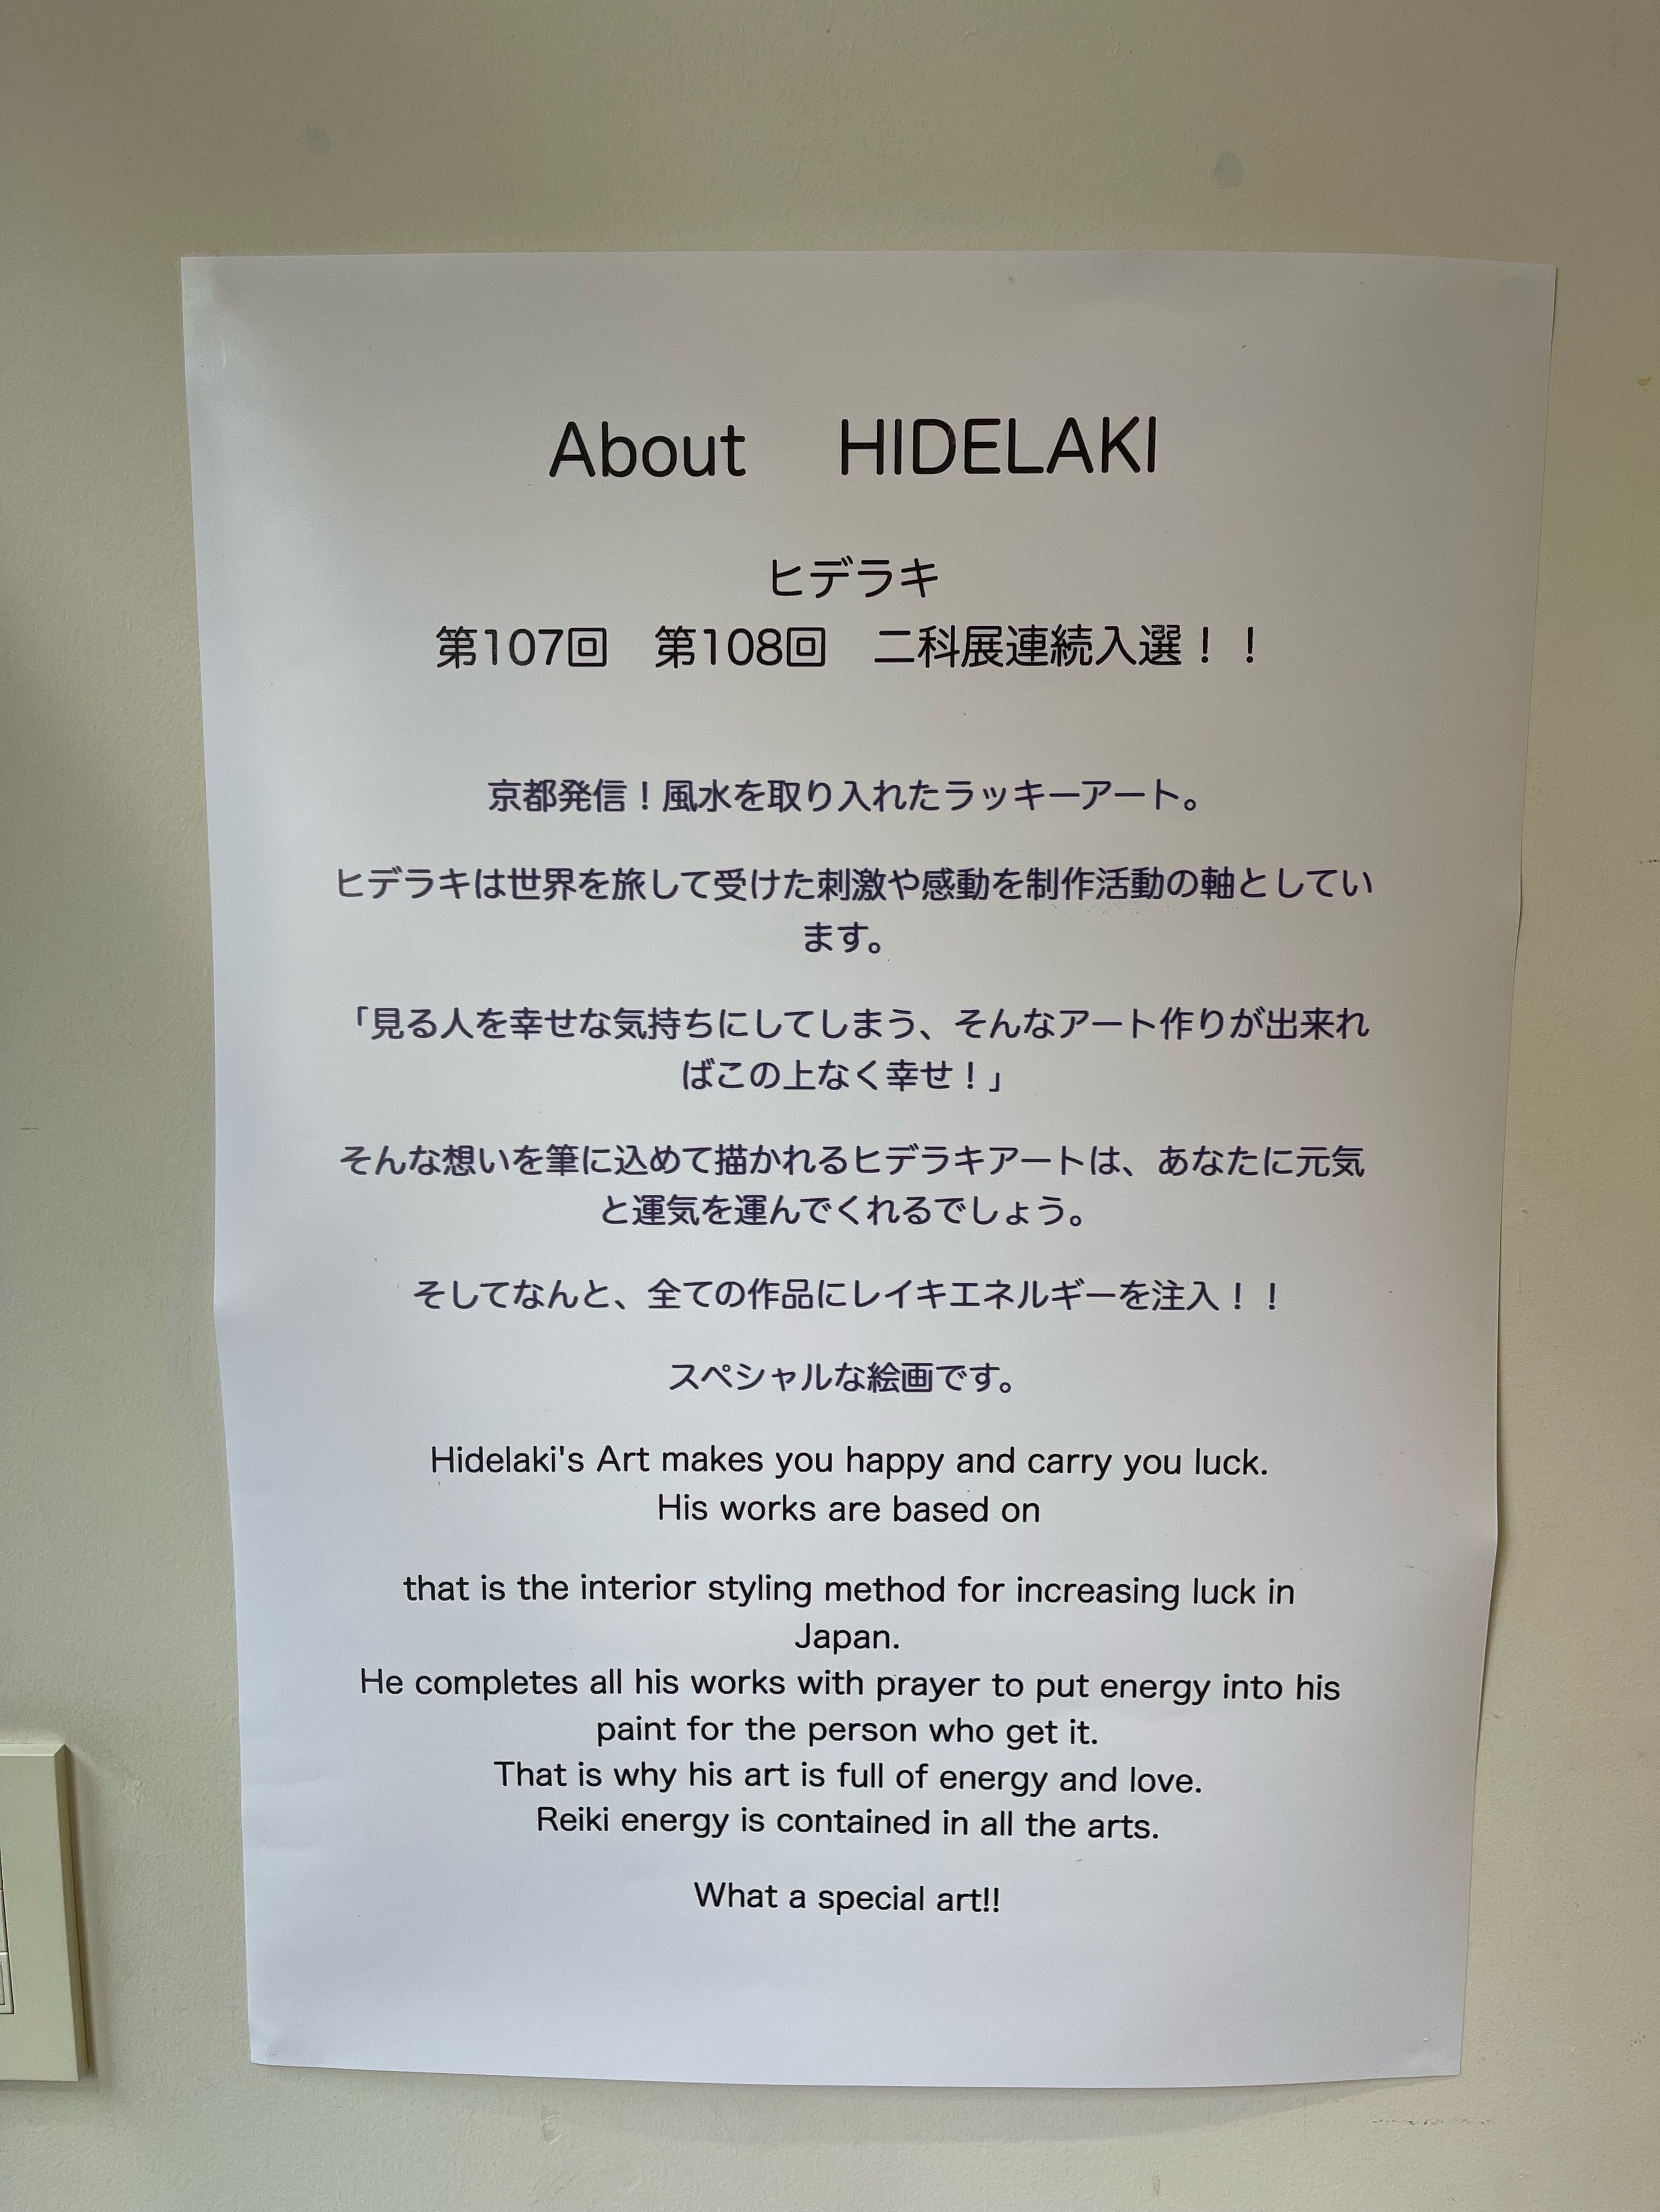 About　HIDELAKI
ヒデラキ
第107回　第108回　二科展連続入選！！
京都発信！風水を取り入れたラッキーアート。
ヒデラキは世界を旅して受けた刺激や感動を制作活動の軸としてい
ます。
「見る人を幸せな気持ちにしてしまう、そんなアート作りが出来れ
ばこの上なく幸せ！」
そんな想いを筆に込めて描かれるヒデラキアートは、あなたに元気
と運気を運んでくれるでしょう。
そしてなんと、全ての作品にレイキエネルギーを注入！！
スペシャルな絵画です。
Hidelaki's Art makes you happy and carry you luck.
His works are based on
that is the interior styling method for increasing luck in
Japan.
He completes all his works with prayer to put energy into his
paint for the person who get it.
That is why his art is full of energy and love.
Reiki energy is contained in all the arts.
What a special art!!